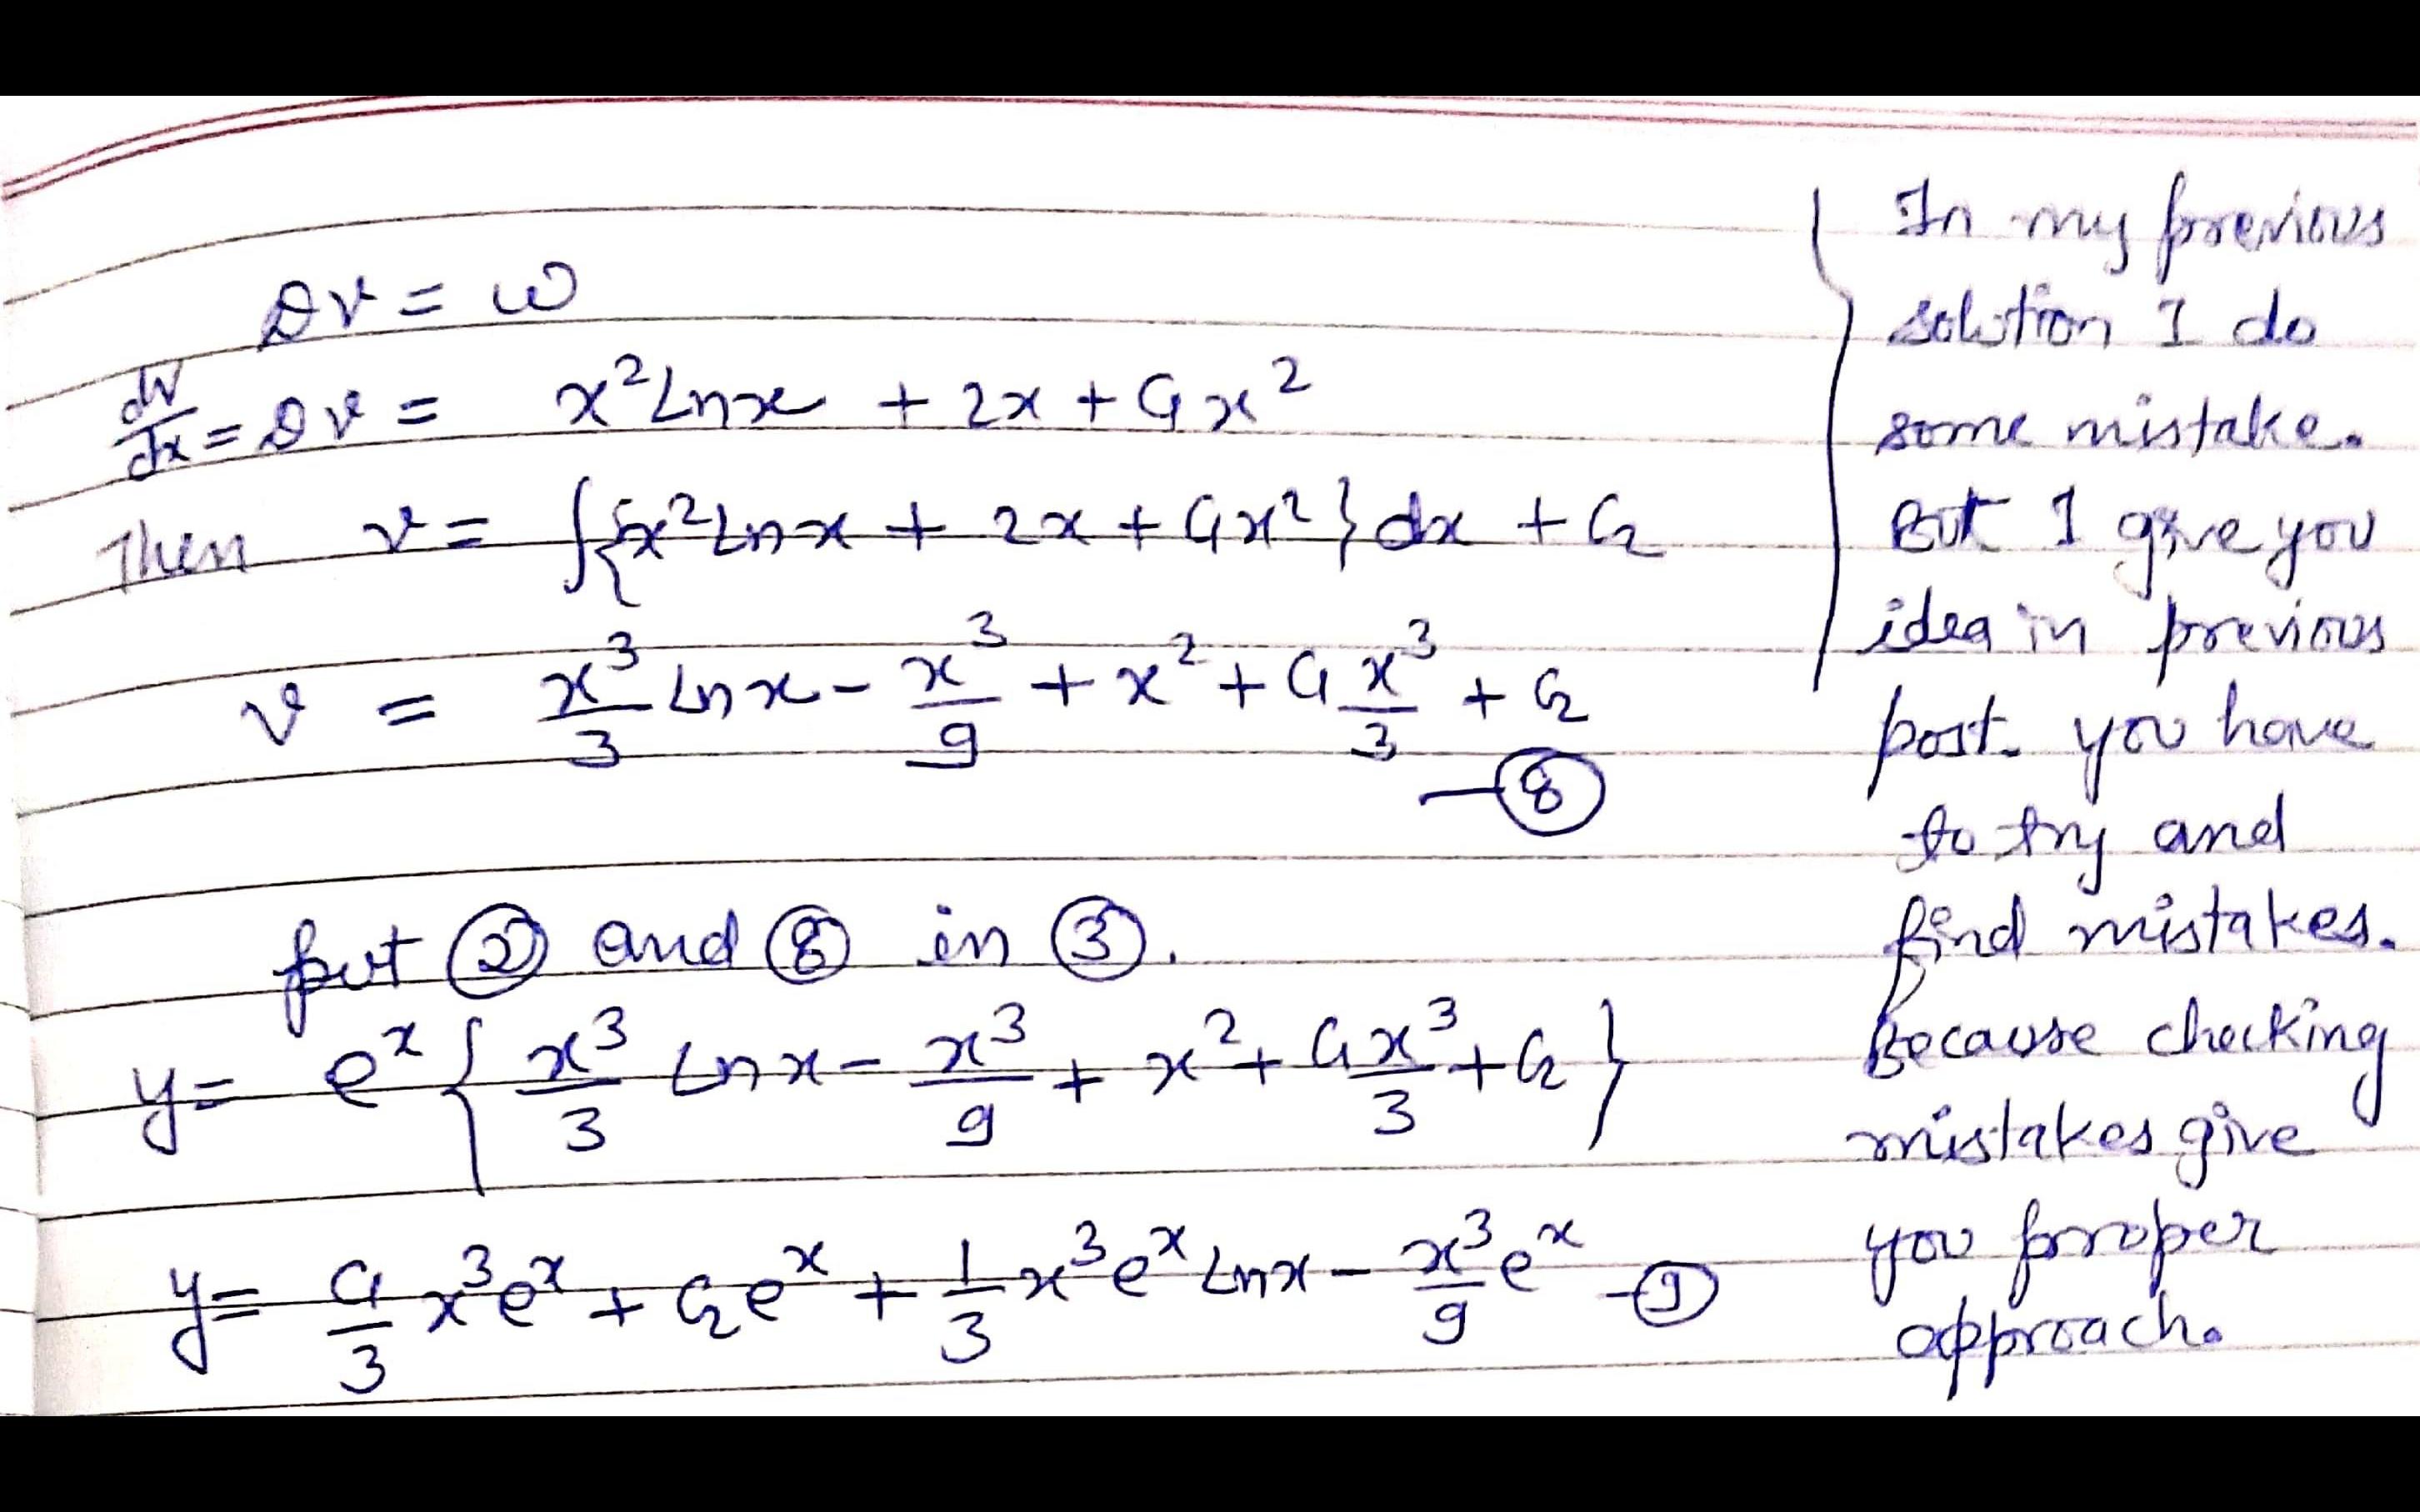 Dv = w
dv/dx = Dv = x² Lnx + 2x + C₁x²
Then v = ∫{x² Lnx + 2x + C₁x²} dx + C₂
v = x³/3 Lnx - x³/9 + x² + C₁ x³/3 + C₂
— ⑧
put ② and ⑧ in ③.
y = eˣ { x³/3 Lnx - x³/9 + x² + C₁ x³/3 + C₂ }
y = C₁/3 x³eˣ + C₂eˣ + 1/3 x³eˣ Lnx - x³/9 eˣ — ⑨
In my previous
solution I do
some mistake.
But I give you
idea in previous
post. you have
to try and
find mistakes.
Because checking
mistakes give
you proper
approach.